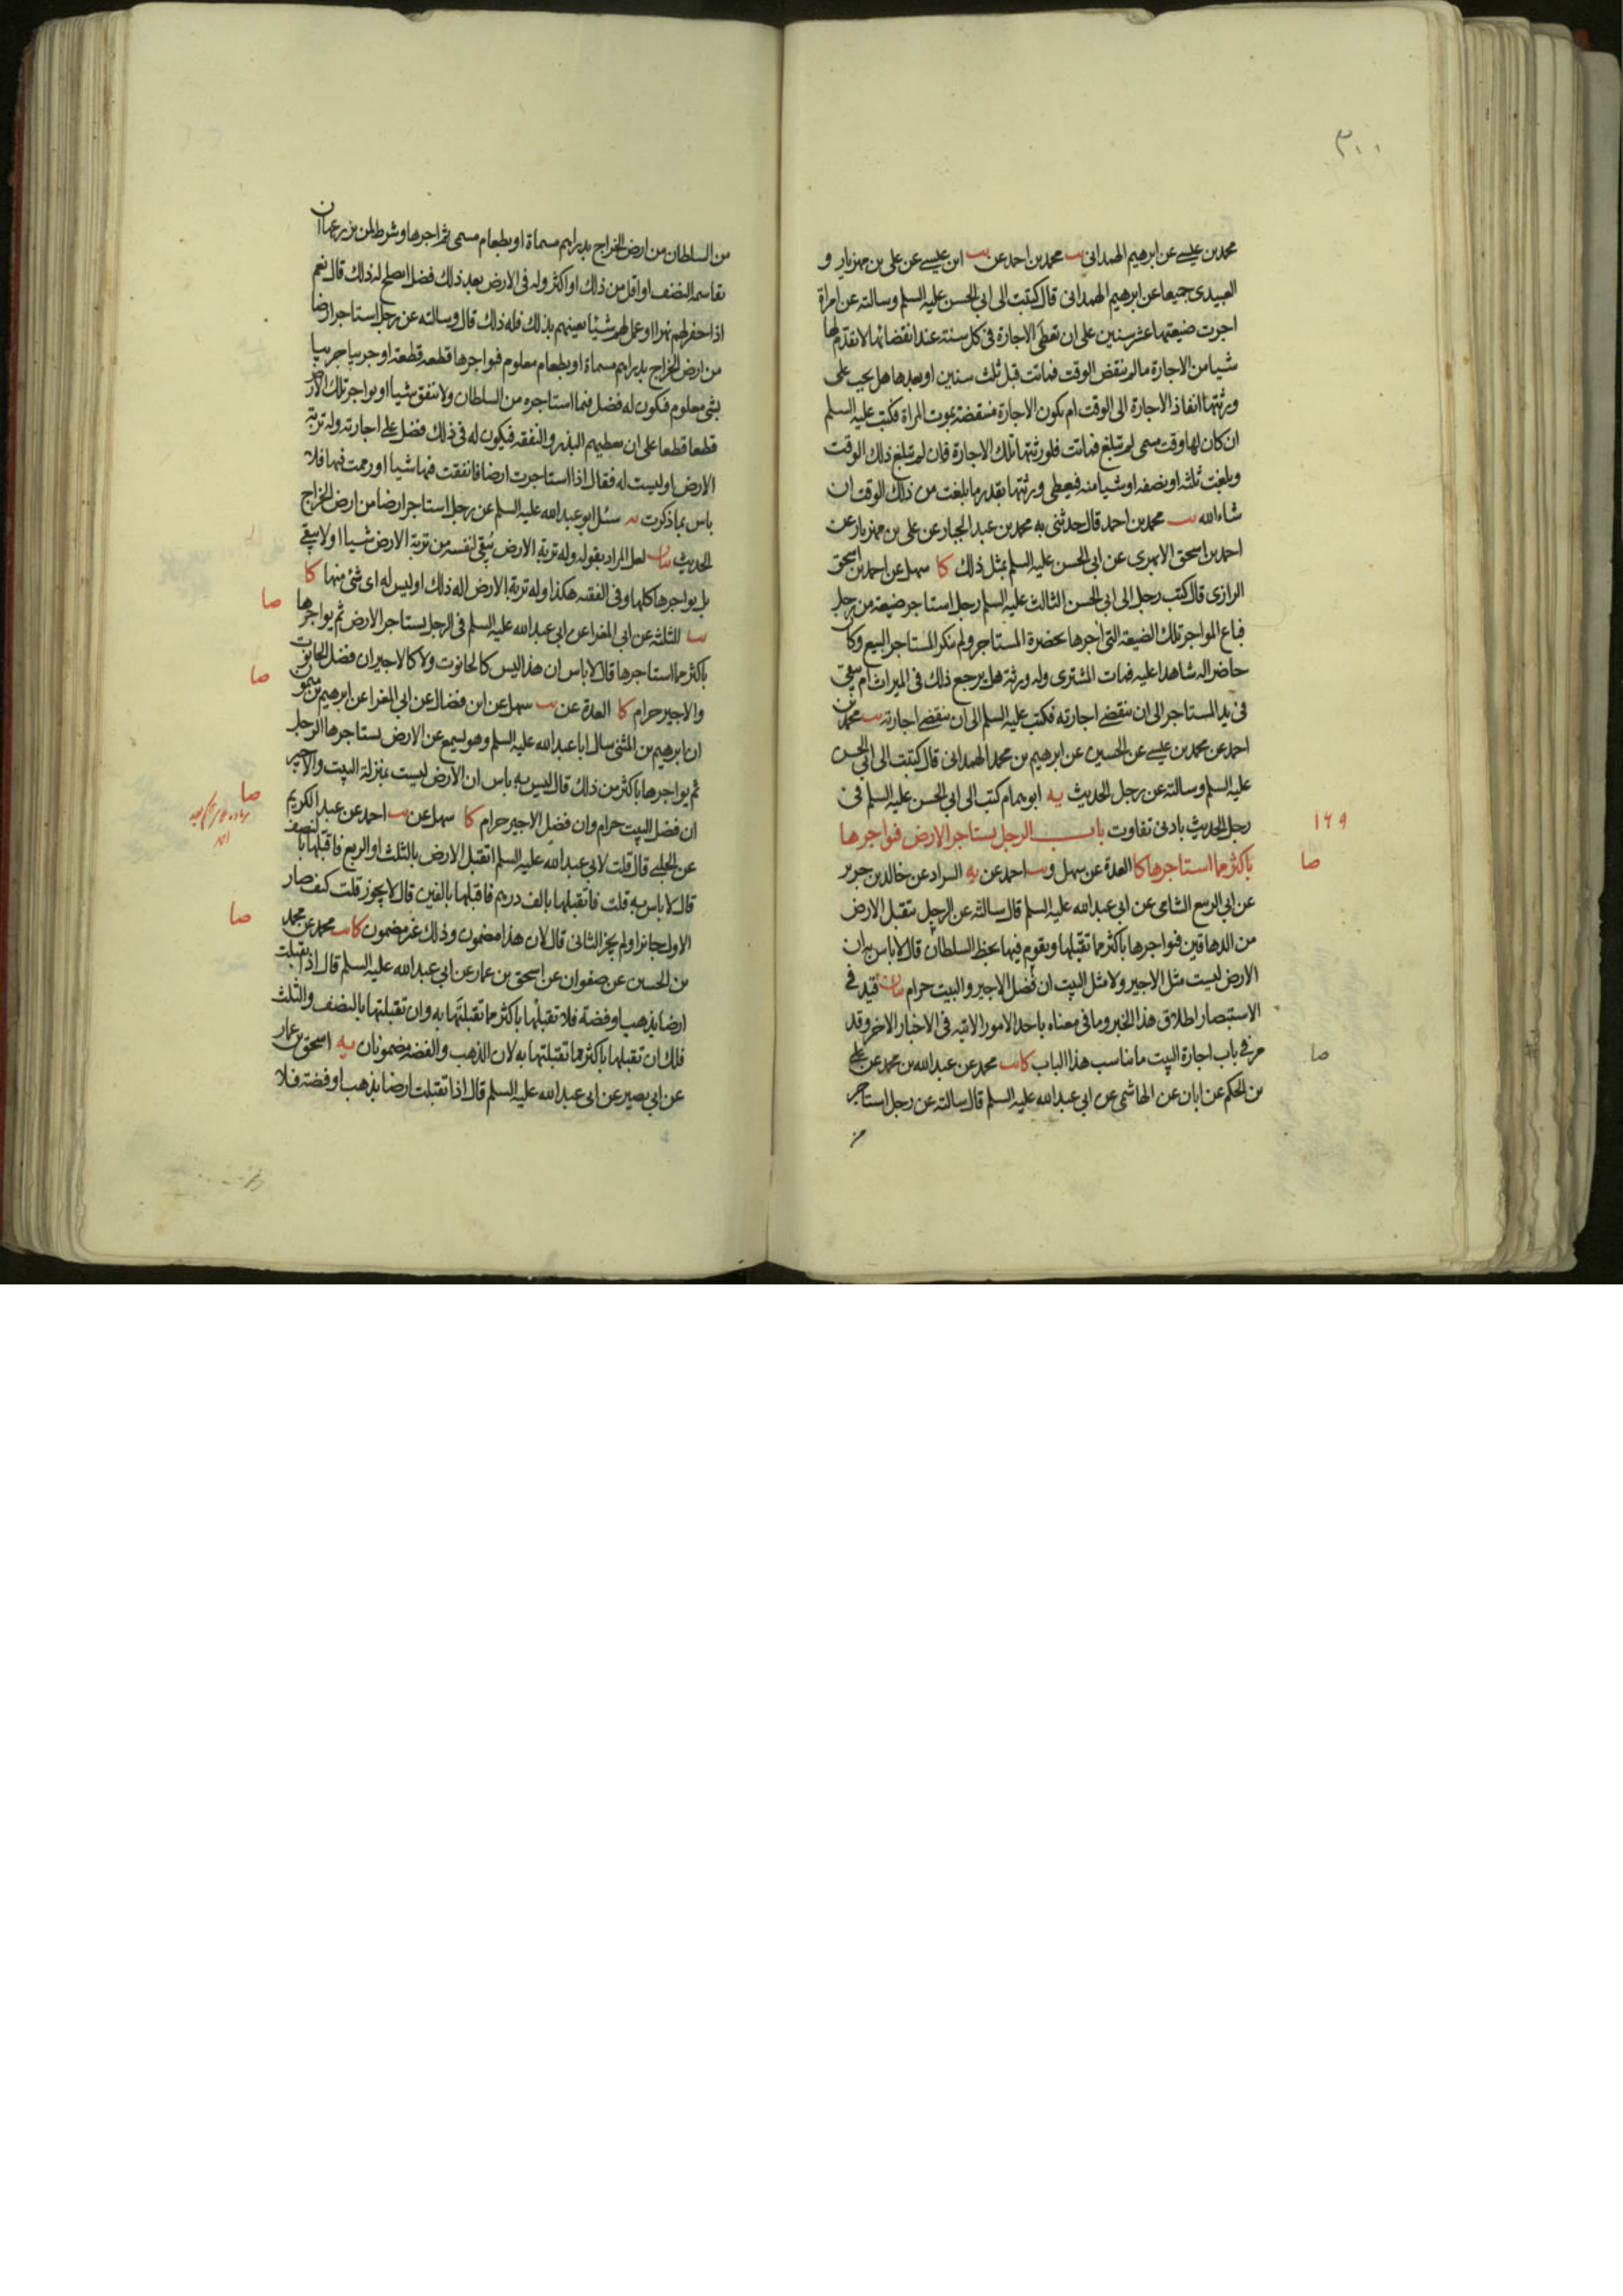 ٣٠٠
محمد بن عيسى عن ابرهيم الهمدانى يب محمد بن احمد عن يب ابن عيسى عن على بن مهزيار و
العبيدى جميعا عن ابرهيم الهمدانى قال كتبت الى ابى الحسن عليه السلم وسالته عن امراة
اجرت ضيعتها عشر سنين على ان تعطى الاجارة فى كل سنة عند انقضائها لا تقدم لها
شيا من الاجارة ما لم تنقض الوقت فماتت قبل ثلث سنين او بعدها هل يجب على
ورثتها انفاذ الاجارة الى الوقت ام يكون الاجارة منقضة بموت المراة فكتب عليه السلم
ان كان لها وقت مسمى لم تبلغ فماتت فلورثتها تلك الاجارة فان لم تبلغ ذلك الوقت
وبلغت ثلثه او نصفه او شيا منه فيعطى ورثتها بقدر ما بلغت من ذلك الوقت ان
شاء الله يب محمد بن احمد قال حدثنى به محمد بن عبد الجبار عن على بن مهزيار عن
احمد بن اسحق الابهرى عن ابى الحسن عليه السلم بمثل ذلك كا سهل عن احمد بن اسحق
الرازى قال كتب رجل الى ابى الحسن الثالث عليه السلم رجل استاجر ضيعة من رجل
فباع المواجر تلك الضيعة التى اجرها بحضرة المستاجر ولم ينكر المستاجر البيع وكان
حاضرا له شاهدا عليه فمات المشترى وله ورثة هل يرجع ذلك فى الميراث ام يبقى
فى يد المستاجر الى ان ينقضى اجارته فكتب عليه السلم الى ان ينقضى اجارته يب محمد بن
احمد عن محمد بن عيسى عن الحسين عن ابرهيم بن محمد الهمدانى قال كتبت الى ابى الحسن
عليه السلم وسالته عن رجل الحديث يه ابو همام كتب الى ابى الحسن عليه السلم فى
رجل الحديث بادنى تفاوت باب الرجل يستاجر الارض فيواجرها
١٤٩
باكثر مما استاجرها كا العدة عن سهل و يب احمد عن يه السراد عن خالد بن جرير
صا
عن ابى الربيع الشامى عن ابى عبد الله عليه السلم قال سالته عن الرجل يتقبل الارض
من الدهاقين فيواجرها باكثر مما تقبلها ويقوم فيها بحظ السلطان قال لا باس به ان
الارض ليست مثل الاجير ولا مثل البيت ان فضل الاجير والبيت حرام بيان قيد فى
الاستبصار اطلاق هذا الخبر وما فى معناه باحد الامور الاتيه فى الاخبار الاخر وقد
مر فى باب اجارة البيت ما يناسب هذا الباب كا يب محمد عن عبد الله بن محمد عن على
صا
بن الحكم عن ابان عن الهاشمى عن ابى عبد الله عليه السلم قال سالته عن رجل استاجر
من
من السلطان من ارض الخراج بدراهم مسماة او بطعام مسمى ثم اجرها وشرط لمن يزرعها ان
يقاسمه النصف او اقل من ذلك او اكثر وله فى الارض بعد ذلك فضل ايصلح له ذلك قال نعم
اذا حفر لهم نهرا او عمل لهم شيئا يعينهم بذلك فله ذلك قال وسالته عن رجل استاجر ارضا
من ارض الخراج بدراهم مسماة او بطعام معلوم فيواجرها قطعه قطعة او جريبا جريبا
بشئ معلوم فيكون له فضل فيما استاجره من السلطان ولا ينفق شيئا او يواجر تلك الارض
قطعا قطعا على ان يعطيهم البذر والنفقه فيكون له فى ذلك فضل على اجارته وله تربة
الارض او ليست له فقال اذا استاجرت ارضا فانفقت فيها شيا او رممت فيها فلا
باس بما ذكرت يه سئل ابو عبد الله عليه السلم عن رجل استاجر ارضا من ارض الخراج
الحديث بيان لعل المراد بقوله وله تربة الارض يبقى لنفسه من تربة الارض شيا او لا يبقى
بل يواجرها كلها وفى الفقيه هكذا وله تربة الارض اله ذلك او ليس له اى شئ منها كا
يب الثلثه عن ابى المغرا عن ابى عبد الله عليه السلم فى الرجل يستاجر الارض ثم يواجرها
صا
باكثر مما استاجرها قال لا باس ان هذا ليس كالحانوت ولا كالاجير ان فضل الحانوت
والاجير حرام كا العدة عن يب سهل عن ابن فضال عن ابى المغرا عن ابرهيم بن ميمون
صا
ان ابرهيم بن المثنى سال ابا عبد الله عليه السلم وهو يسمع عن الارض يستاجرها الرجل
ثم يواجرها باكثر من ذلك قال ليس به باس ان الارض ليست بمنزلة البيت والاجير
ان فضل البيت حرام وان فضل الاجير حرام كا سهل عن يب احمد عن عبد الكريم
صا
عن الحلبى قال قلت لابى عبد الله عليه السلم اتقبل الارض بالثلث او الربع فاقبلها بالنصف
قال لا باس به قلت فاتقبلها بالف درهم فاقبلها بالفين قال لا يجوز قلت كيف صار
الاول جائزا ولم يجز الثانى قال لان هذا مضمون وذلك غير مضمون كا يب محمد عن محمد
صا
بن الحسين عن صفوان عن اسحق بن عمار عن ابى عبد الله عليه السلم قال اذا تقبلت
ارضا بذهب او فضة فلا تقبلها باكثر مما تقبلتها به وان تقبلتها بالنصف والثلث
فلك ان تقبلها باكثر مما تقبلتها به لان الذهب والفضه مضمونان يه اسحق بن عمار
عن ابى بصير عن ابى عبد الله عليه السلم قال اذا تقبلت ارضا بذهب او فضة فلا